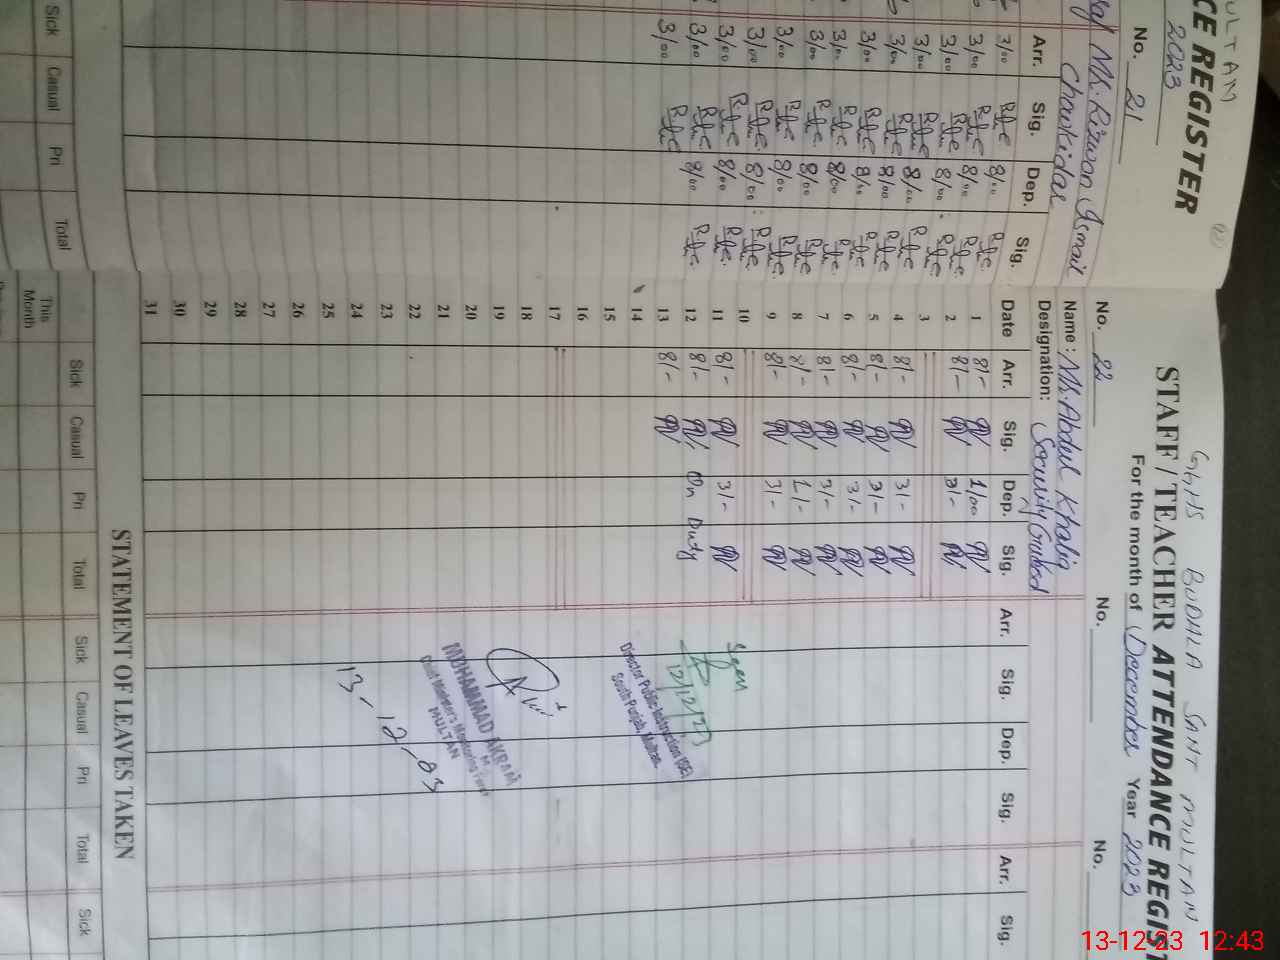 ULTAM
CE REGISTER
2023
No. 21
Mr. Rizwan Ismail
Chowkidar
Arr. Sig. Dep. Sig.
3/00 8/00
3/00 8/00
3/00 8/00
3/00 8/00
3/00 8/00
3/00 8/00
3/00 8/00
3/00 8/00
3/00 8/00
3/00 8/00
3/00 8/00
3/00 8/00
3/00
Sick Casual Pri Total
GHSS BUDHLA SANT MULTAN
STAFF / TEACHER ATTENDANCE REGIST
For the month of December Year 2023
No. 22 No. No.
Name: Mr. Abdul Khaliq
Designation: Security Guard
Date Arr. Sig. Dep. Sig. Arr. Sig. Dep. Sig. Arr. Sig.
1 8/- 1/00
2 8/- 3/-
3
4 8/- 3/-
5 8/- 3/-
6 8/- 3/-
7 8/- 3/-
8 8/- 1/-
9 8/- 3/-
10
11 8/- 3/-
12 8/- On Duty
13 8/-
14
15
16
17
18
19
20
21
22
23
24
25
26
27
28
29
30
31
Seen
12/12/23
Director Public Instruction (SE)
South Punjab, Multan.
MOHAMMAD AKRAM
Chief Minister's Monitoring Force
MULTAN
13-12-23
STATEMENT OF LEAVES TAKEN
Sick Casual Pri Total Sick Casual Pri Total Sick
This Month
13-12-23 12:43